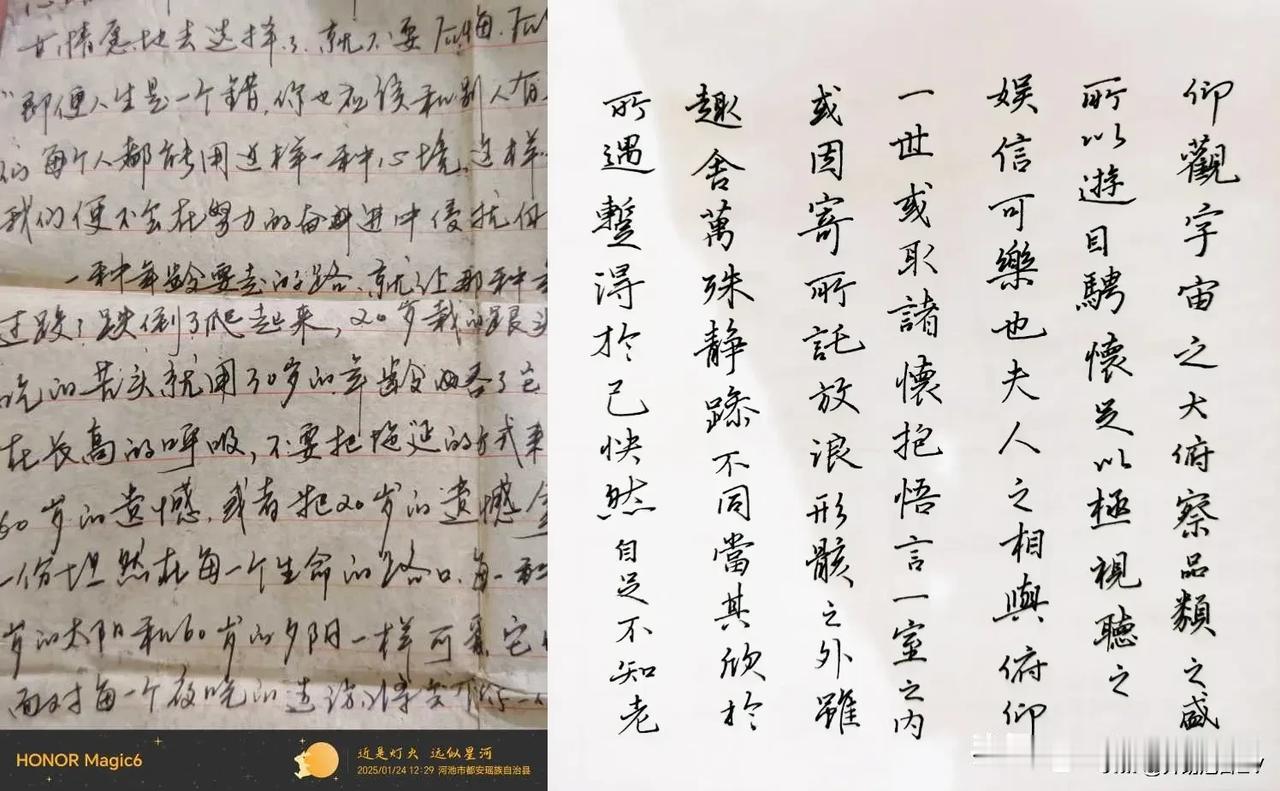 甘情愿地去选择了.就不要后悔.后
"即便人生是一个错,你也应该和别人有
们每个人都能用这样一种心境.这样
我们便不会在努力的奋斗进中
一种年龄要走的路、就让那种
过跤?跌倒了爬起来,20岁栽的跟头
吃的苦头就用30岁的年龄 了它
在长高的呼吸,不要把拖延的方式来
60岁的遗憾.或者把20岁的遗憾
一份坦然在每一个生命的路口.每一种
岁的太阳和60岁的夕阳一样可 它
面对每一个夜晚的造访
HONOR Magic6
近是灯火 远似星河
2025/01/24 12:29 河池市都安瑶族自治县
仰觀宇宙之大俯察品類之盛
所以遊目騁懷足以極視聽之
娱信可樂也夫人之相與俯仰
一世或取諸懷抱悟言一室之内
或因寄所託放浪形骸之外雖
趣舍萬殊静躁不同當其欣於
所遇蹔得於己快然自足不知老